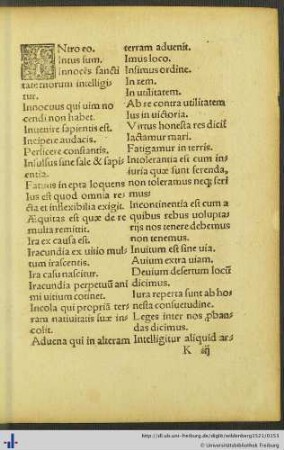 INtro eo.
Intus sum.
Innocẽs sancti
tate morum intelligi
tur.
Innocuus qui uim no
cendi non habet.
Inuenire sapientis est.
Incipere audacis.
Perficere constantis.
Insulsus sine sale & sapi
entia.
Fatuus inepta loquens
Ius est quod omnia re
cta et inflexibilia exigit.
Æquitas est quæ de re
multa remittit.
Ira ex causa est.
Iracundia ex uitio mul
tum irascentis.
Ira casu nascitur.
Iracundia perpetuũ ani
mi uitium cõtinet.
Incola qui propriã ter
ram natiuitatis suæ in
colit.
Aduena qui in alteram
terram aduenit.
Imus loco.
Infimus ordine.
In rem.
In utilitatem.
Ab re contra utilitatem
Ius in uictoria.
Virtus honesta res dicit̃
Iactamur mari.
Fatigamur in terris.
Intolerantia est cum in
iuria quæ sunt ferenda,
non toleramus neq; feri
mus
Incontinentia est cum a
quibus rebus uoluptar
ijs nos tenere debemus
non tenemus.
Inuium est sine uia.
Auium extra uiam.
Deuium desertum locũ
dicimus.
Iura reperta sunt ab ho
nesta consuetudine.
Leges inter nos, phan
das dicimus.
Intelligitur aliquid ar
K iij
http://dl.ub.uni-freiburg.de/diglit/wildenberg1521/0153
© Universitätsbibliothek Freiburg